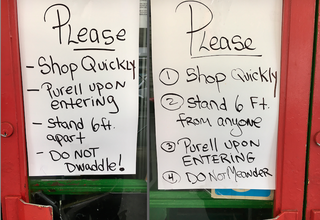 Please
- Shop Quickly
- Purell upon
entering
- Stand 6ft.
apart
- DO NOT
Dwaddle!
Please
1 Shop Quickly
2 Stand 6 Ft.
from anyone
3 Purell upon
ENTERING
4 DO NOT Meander